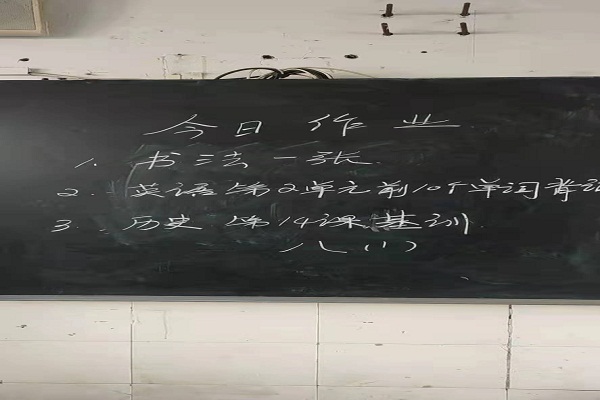 今日作业
1. 书法一张
2. 英语第2单元前10个单词背记
3. 历史第14课基训
八(1)